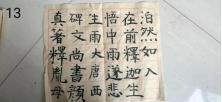 13
泊然如入
在前釋迦生
悟中雨遂悲
生雨大唐西
碑文尚書顏
真著釋胤母